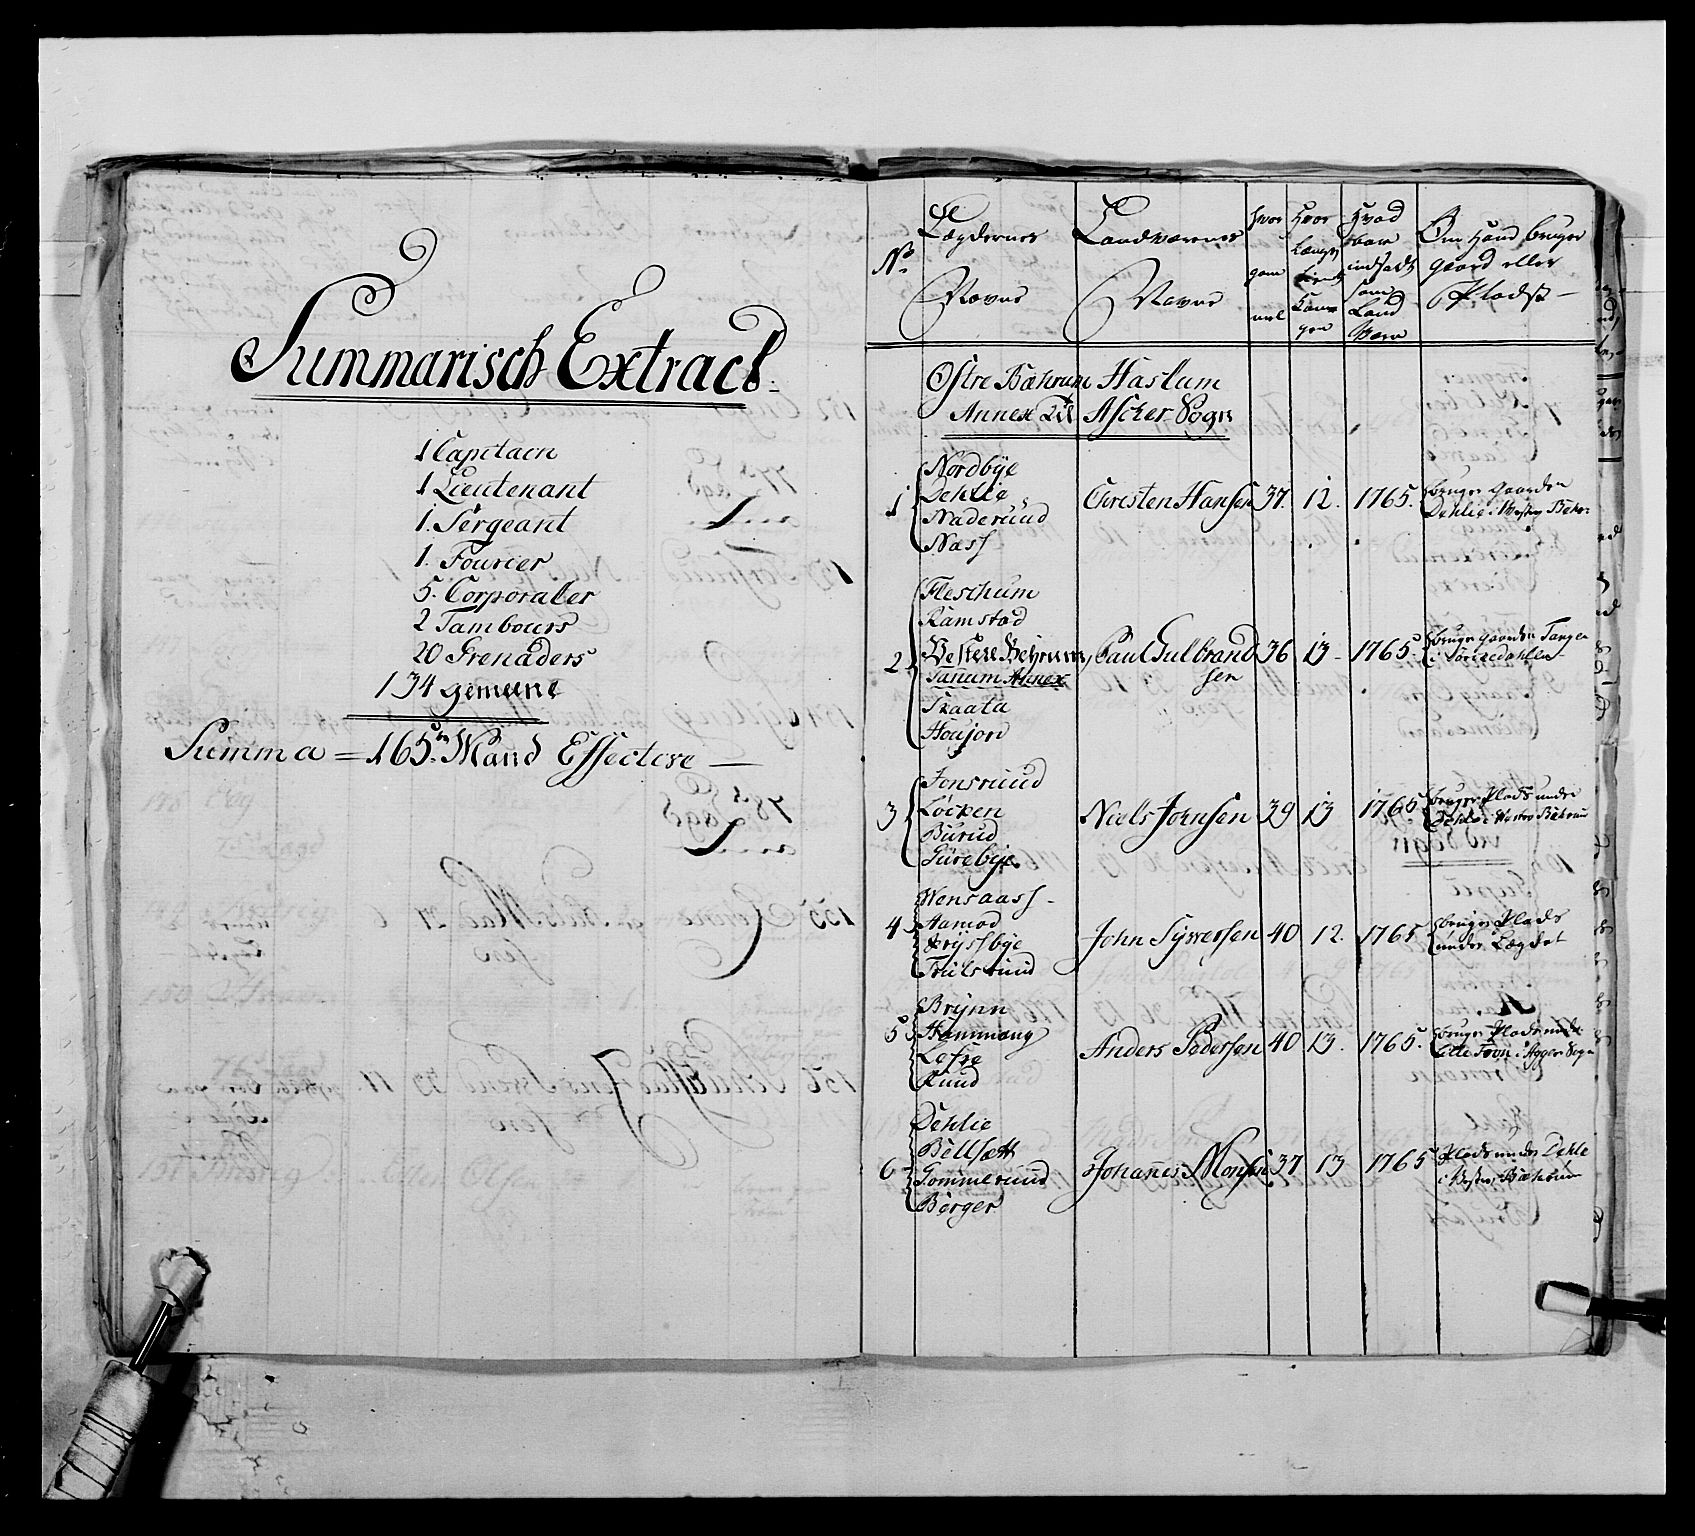 Summarisch Extract
1 Capitaen
1 Lieutenant
1. Sergeant
1. Fourier
5. Corporaler
2 Tambours
20 Grenaders
134 gemeene
Summa = 165 Mand Effective
No
Lægdernes Navne
Landværnes Navne
hvor gammel
Hvor længe tient Kongen
Hvad Aar indsadt som Land Værn
Om Hand bruger gaard eller Plads
Østre Bæhrum Haslum
Annex Til Ascher Sogn
1
Nordbye
Dehlie
Naderuud
Næss
Christen Hansen 37. 12. 1765.
bruger gaarden
Dehlie i Westre Bæhr:
2
Fleschum
Ramstad
Vestere Behrum,
Tanum Annex
Skaata
Houjori
Paul Gulbrand
sen
36 13 - 1765.
bruger gaarden Tangen
i Sørkedahlen
3
Jonsruud
Løcken
Buruud
Gurebye
Niels Jonsen 39 13 1765
bruger Plads under
Dehlie i Westre Bæhrum
4
Wensaass -
Aamod
Fryssbye
Trulsruud
John Syversen 40 12. 1765
bruger Plads
under Lægdet
5
Brynn
Hammang
Lefre
Ruud
Anders Pedersen 40 13. 1765.
bruger Plads under
i Agger Sogn
6
Dehlie
Bellsætt
Gommeruud
Berger
Johannes Monsen 37 13 1765
Plads under Dehle
i Vestre Bæhrum